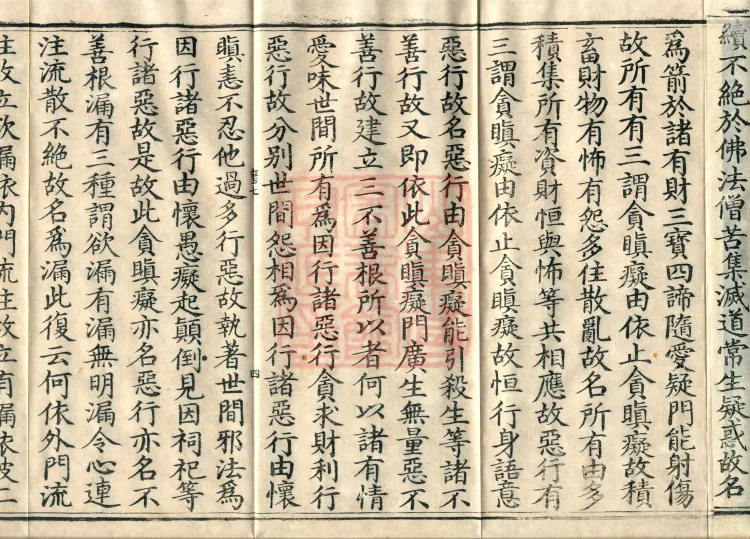 續不絕於佛法僧苦集滅道常生疑惑故名
為箭於諸有財三寶四諦隨愛疑門能射傷
故所有有三謂貪瞋癡由依止貪瞋癡故積
畜財物有怖有怨多住散亂故名所有由多
積集所有資財恒與怖等共相應故惡行有
三謂貪瞋癡由依止貪瞋癡故恒行身語意
惡行故名惡行由貪瞋癡能引殺生等諸不
善行故又即依此貪瞋癡門廣生無量惡不
善行故建立三不善根所以者何以諸有情
愛味世間所有為因行諸惡行貪求財利行
惡行故分別世間怨相為因行諸惡行由懷
瞋恚不忍他過多行惡故執著世間邪法為
因行諸惡行由懷愚癡起顛倒見因祠祀等
行諸惡故是故此貪瞋癡亦名惡行亦名不
善根漏有三種謂欲漏有漏無明漏令心連
注流散不絕故名為漏此復云何依外門流
注故立欲漏依內門流注故立有漏依彼二
四